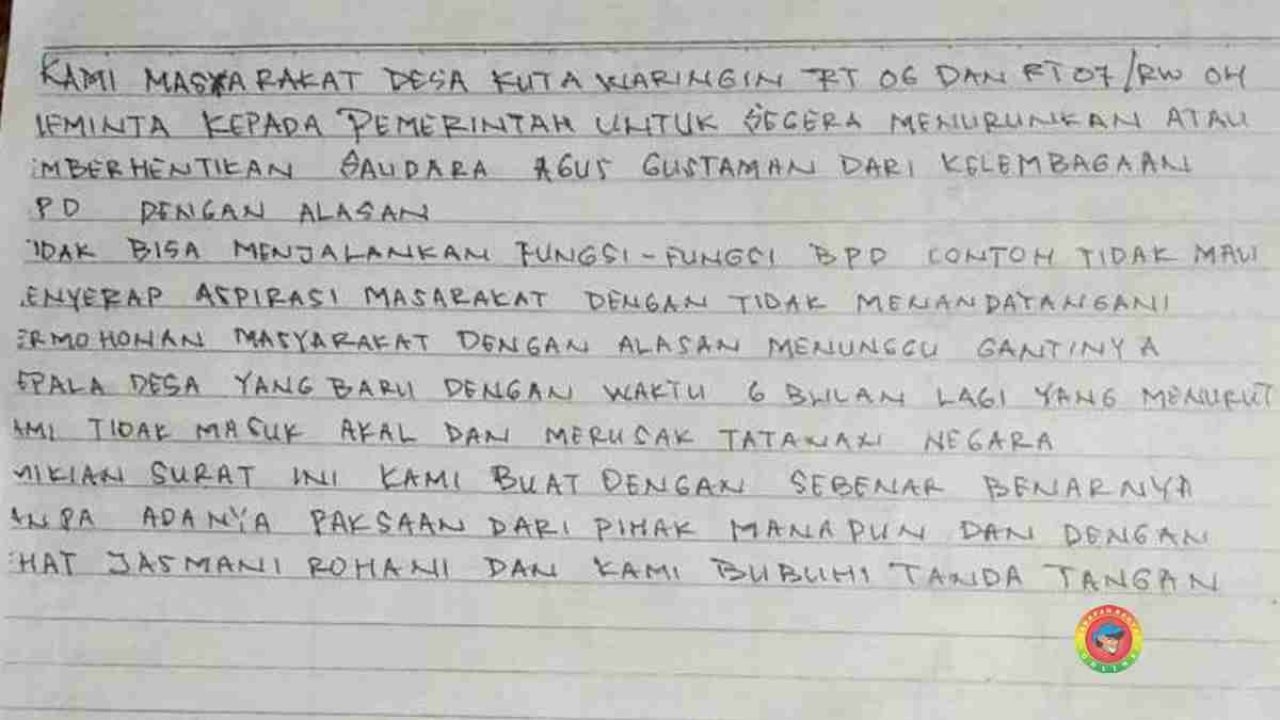 KAMI MASYARAKAT DESA KUTAWARINGIN RT 06 DAN RT 07/RW 04
EMINTA KEPADA PEMERINTAH UNTUK SEGERA MENURUNKAN ATAU
MBERHENTIKAN SAUDARA AGUS GUSTAMAN DARI KELEMBAGAAN
PD DENGAN ALASAN
IDAK BISA MENJALANKAN FUNGSI-FUNGSI BPD CONTOH TIDAK MAU
ENYERAP ASPIRASI MASARAKAT DENGAN TIDAK MENANDATANGANI
ERMOHONAN MASYARAKAT DENGAN ALASAN MENUNGGU GANTINYA
EPALA DESA YANG BARU DENGAN WAKTU 6 BULAN LAGI YANG MENURUT
AMI TIDAK MASUK AKAL DAN MERUSAK TATANAN NEGARA
MIKIAN SURAT INI KAMI BUAT DENGAN SEBENAR BENARNYA
ANPA ADANYA PAKSAAN DARI PIHAK MANAPUN DAN DENGAN
EHAT JASMANI ROHANI DAN KAMI BUBUHI TANDA TANGAN
ONLINE